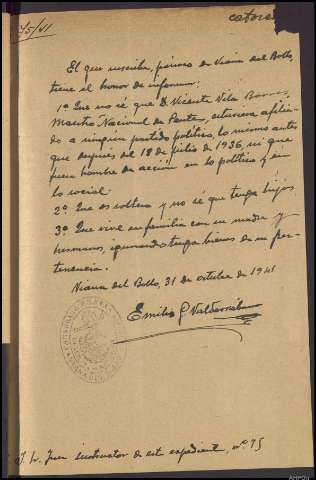 75/41
catorce
El que suscribe, párroco de Viana del Bollo,
tiene el honor de informar:
1º Que no sé que D. Vicente Vila
Maestro Nacional de Pentes, estuviera afilia-
do a ningún partido político, lo mismo antes
que después del 18 de julio de 1936, ni que
fuera hombre de acción en lo político y en
lo social.
2º Que es soltero y no sé que tenga hijos
3º Que vive en familia con su madre y
hermanos, ignorando tenga bienes de su per-
tenencia.
Viana del Bollo, 31 de octubre de 1941
Emilio
Sr. Juez instructor de este expediente, nº 75